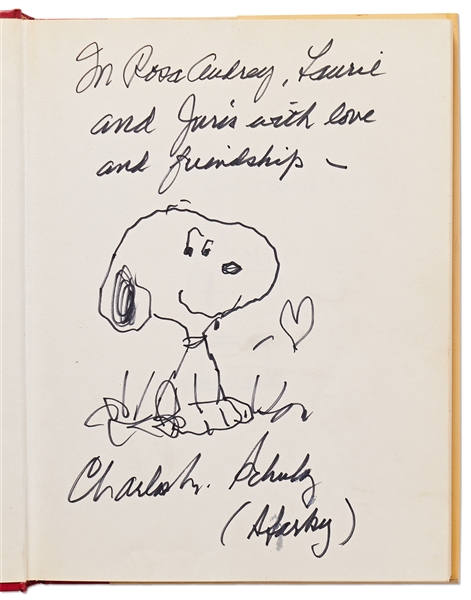 For Rosa Audrey, Laurie
and Juris with love
and friendship –
Charles M. Schulz
(Sparky)